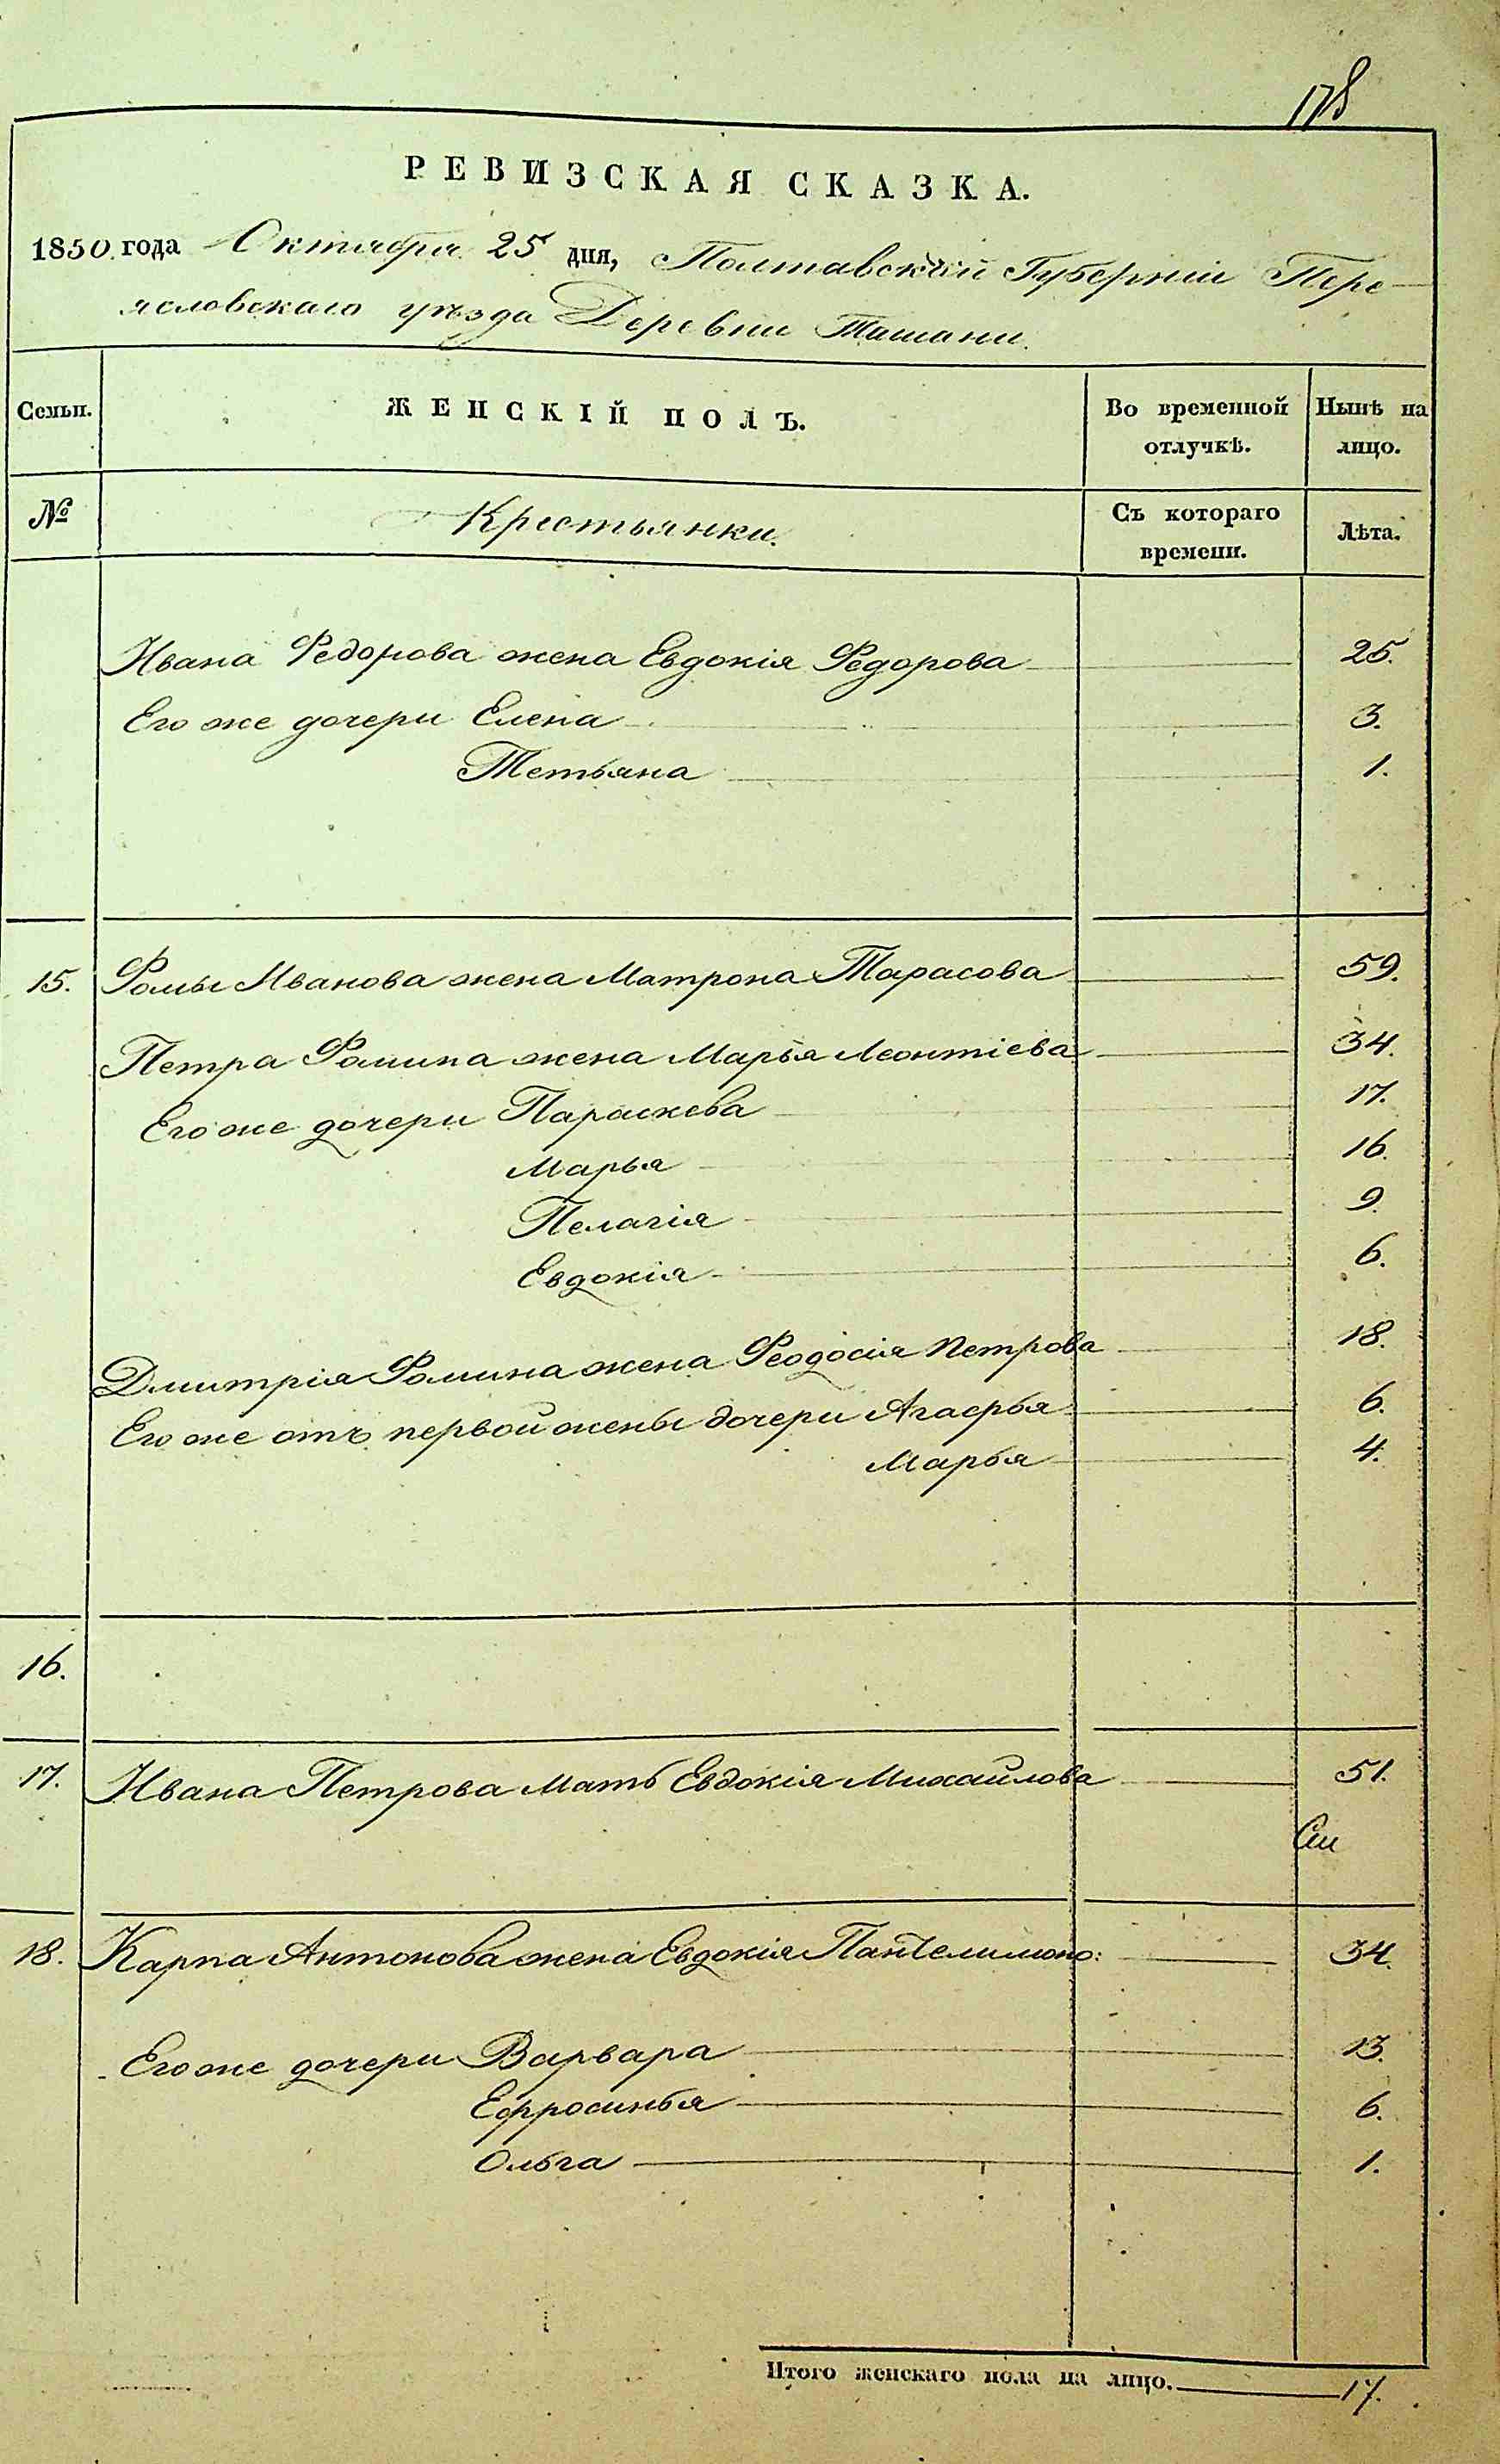 178
РЕВИЗСКАЯ СКАЗКА.
1850. года Октября 25 дня, Полтавской Губерніи Пере-
яславскаго уѣзда Деревни Ташани.
Семьи. ЖЕНСКІЙ ПОЛЪ. Во временной отлучкѣ. Нынѣ на лицо.
№ Крестьянки. Съ котораго времени. Лѣта.
Ивана Федорова жена Евдокія Федорова 25.
Его же дочери Елена 3.
Тетьяна 1.
15. Фомы Иванова жена Матрона Тарасова 59.
Петра Фомина жена Марья Леонтіева 34.
Его же дочери Параскева 17.
Марья 16.
Пелагія 9.
Евдокія 6.
Дмитрія Фомина жена Феодосія Петрова 18.
Его же отъ первой жены дочери Агафья 6.
Марья 4.
16.
17. Ивана Петрова Мать Евдокія Михайлова 51.
18. Карпа Антонова жена Евдокія Пантелимоно: 34.
Его же дочери Варвара 13.
Ефросинья 6.
Ольга 1.
Итого женскаго пола на лицо. 17.